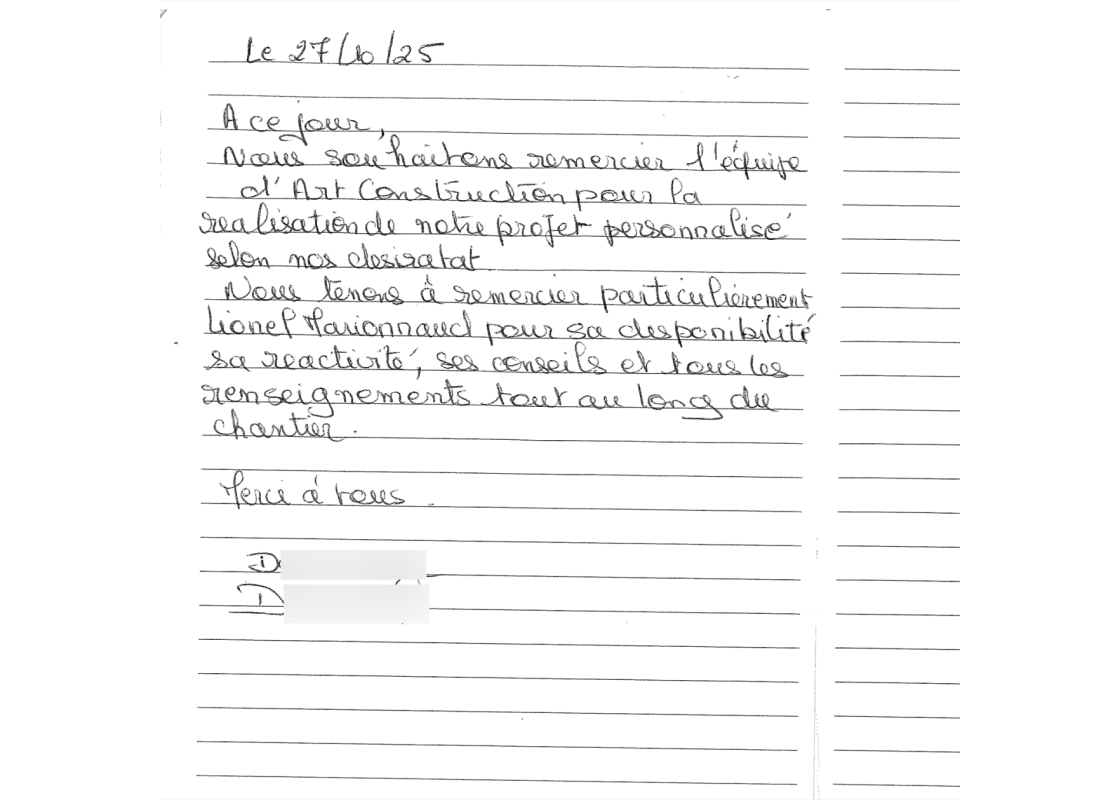 Le 27/10/25
A ce jour,
Nous souhaitons remercier l'équipe
d'Art Construction pour la
realisation de notre projet personnalisé
selon nos desiratat
Nous tenons à remercier particulièrement
Lionel Marionnaud pour sa disponibilité
sa reactivité, ses conseils et tous les
renseignements tout au long du
chantier.
Merci à tous.
D
D